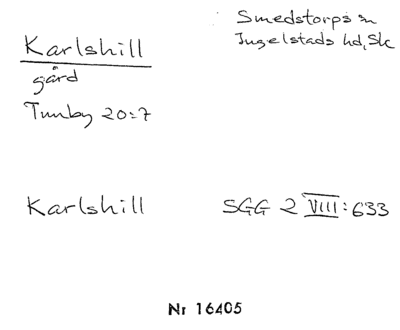 Karlshill
gård
Tunby 20:7
Smedstorps sn
Ingelstads hd, Sk
Karlshill
SGG 2 VIII:633
Nr 16405